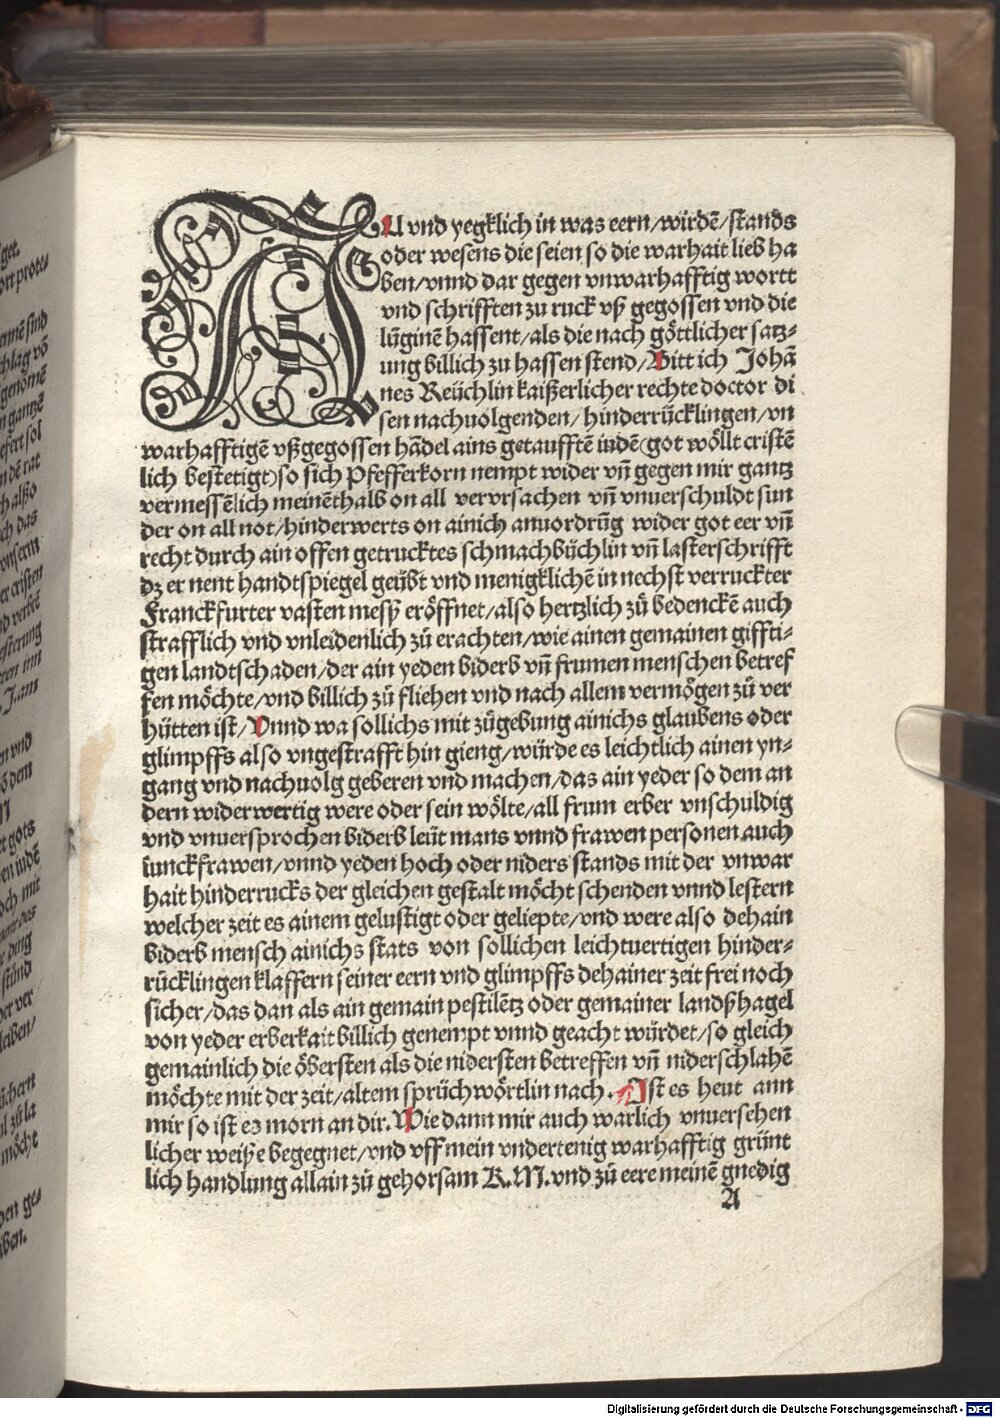 All vnd yegklich in was eern/wirdē/stands
oder wesens die seien so die warhait lieb ha
ben/vnnd dar gegen vnwarhafftig wortt
vnd schrifften zu ruck vß gegossen vnd die
lüginē hassent/als die nach göttlicher satz-
ung billich zu hassen stend/Bitt ich Johā
nes Reüchlin kaißerlicher rechte doctor di
sen nachuolgenden/hinderrücklingen/vn
warhafftigē vßgegossen hādel ains getaufftē iudē(got wöllt cristē
lich bestetigt)so sich Pfefferkorn nempt wider vn̄ gegen mir gantz
vermessēlich meinēthalb on all vervrsachen vn̄ vnuerschuldt sun
der on all not/hinderwerts on ainich anuordrūg wider got eer vn̄
recht durch ain offen getrucktes schmachbüchlin vn̄ lasterschrifft
dz er nent handtspiegel geübt vnd menigklichē in nechst verruckter
Franckfurter vasten mesß eröffnet/also hertzlich zů bedenckē auch
strafflich vnd vnleidenlich zů erachten/wie ainen gemainen giffti-
gen landtschaden/der ain yeden biderb vn̄ frumen menschen betref
fen möchte/vnd billich zů fliehen vnd nach allem vermögen zů ver
hütten ist/Vnnd wa sollichs mit zůgebung ainichs glaubens oder
glimpffs also vngestrafft hin gieng/würde es leichtlich ainen yn-
gang vnd nachuolg geberen vnd machen/das ain yeder so dem an
dern widerwertig were oder sein wölte/all frum erber vnschuldig
vnd vnuersprochen biderb leüt mans vnnd frawen personen auch
iunckfrawen/vnnd yeden hoch oder niders stands mit der vnwar
hait hinderrucks der gleichen gestalt möcht schenden vnnd lestern
welcher zeit es ainem gelustigt oder geliepte/vnd were also dehain
biderb mensch ainichs stats von sollichen leichtuertigen hinder-
rücklingen klaffern seiner eern vnd glimpffs dehainer zeit frei noch
sicher/das dan als ain gemain pestilētz oder gemainer landßhagel
von yeder erberkait billich genempt vnnd geacht würdet/so gleich
gemainlich die öbersten als die nidersten betreffen vn̄ niderschlahē
möchte mit der zeit/altem sprüchwörtlin nach. Ist es heut ann
mir so ist es morn an dir. Wie dann mir auch warlich vnuersehen
licher weiße begegnet/vnd vff mein vndertenig warhafftig grünt
lich handlung allain zů gehorsam K.M.vnd zů eere meinē gnedig
A
Digitalisierung gefördert durch die Deutsche Forschungsgemeinschaft - DFG